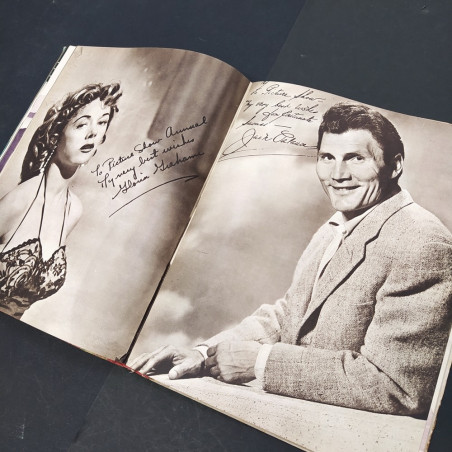 To Picture Show Annual
My very best wishes
Gloria Grahame
To Picture Show
My very best wishes
Jack Palance